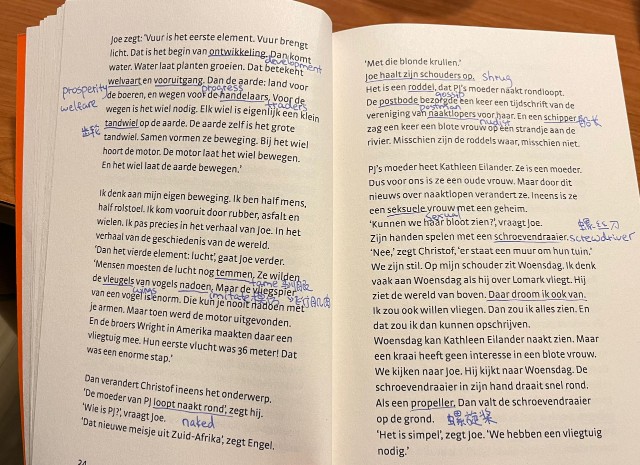 Joe zegt: 'Vuur is het eerste element. Vuur brengt
licht. Dat is het begin van ontwikkeling. Dan komt
development
water. Water laat planten groeien. Dat betekent
welvaart en vooruitgang. Dan de aarde: land voor
prosperity progress
de boeren, en wegen voor de handelaars. Voor de
welfare traders
wegen is het wiel nodig. Elk wiel is eigenlijk een klein
tandwiel op de aarde. De aarde zelf is het grote
齿轮
tandwiel. Samen vormen ze beweging. Bij het wiel
hoort de motor. De motor laat het wiel bewegen.
En het wiel laat de aarde bewegen.'
Ik denk aan mijn eigen beweging. Ik ben half mens,
half rolstoel. Ik kom vooruit door rubber, asfalt en
wielen. Ik pas precies in het verhaal van Joe. In het
verhaal van de geschiedenis van de wereld.
'Dan het vierde element: lucht', gaat Joe verder.
'Mensen moesten de lucht nog temmen. Ze wilden
tame 驯服
de vleugels van vogels nadoen. Maar de vliegspier
wings imitate
van een vogel is enorm. Die kun je nooit nadoen met
je armen. Maar toen werd de motor uitgevonden.
En de broers Wright in Amerika maakten daar een
vliegtuig mee. Hun eerste vlucht was 36 meter! Dat
was een enorme stap.'
Dan verandert Christof ineens het onderwerp.
'De moeder van PJ loopt naakt rond', zegt hij.
naked
'Wie is PJ?', vraagt Joe.
'Dat nieuwe meisje uit Zuid-Afrika', zegt Engel.
24
'Met die blonde krullen.'
Joe haalt zijn schouders op.
shrug
Het is een roddel, dat PJ's moeder naakt rondloopt.
gossip
De postbode bezorgde een keer een tijdschrift van de
postman
vereniging van naaktlopers voor haar. En een schipper
nudist 船长
zag een keer een blote vrouw op een strandje aan de
rivier. Misschien zijn de roddels waar, misschien niet.
PJ's moeder heet Kathleen Eilander. Ze is een moeder.
Dus voor ons is ze een oude vrouw. Maar door dit
nieuws over naaktlopen verandert ze. Ineens is ze
een seksuele vrouw met een geheim.
sexual
'Kunnen we haar bloot zien?', vraagt Joe.
螺丝刀
Zijn handen spelen met een schroevendraaier.
screwdriver
'Nee,' zegt Christof, 'er staat een muur om hun tuin.'
We zijn stil. Op mijn schouder zit Woensdag. Ik denk
vaak aan Woensdag als hij over Lomark vliegt. Hij
ziet de wereld van boven. Daar droom ik ook van.
Ik zou ook willen vliegen. Dan zou ik alles zien. En
dat zou ik dan kunnen opschrijven.
Woensdag kan Kathleen Eilander naakt zien. Maar
een kraai heeft geen interesse in een blote vrouw.
We kijken naar Joe. Hij kijkt naar Woensdag. De
schroevendraaier in zijn hand draait snel rond.
Als een propeller. Dan valt de schroevendraaier
op de grond.
螺旋桨
'Het is simpel', zegt Joe. 'We hebben een vliegtuig
nodig.'